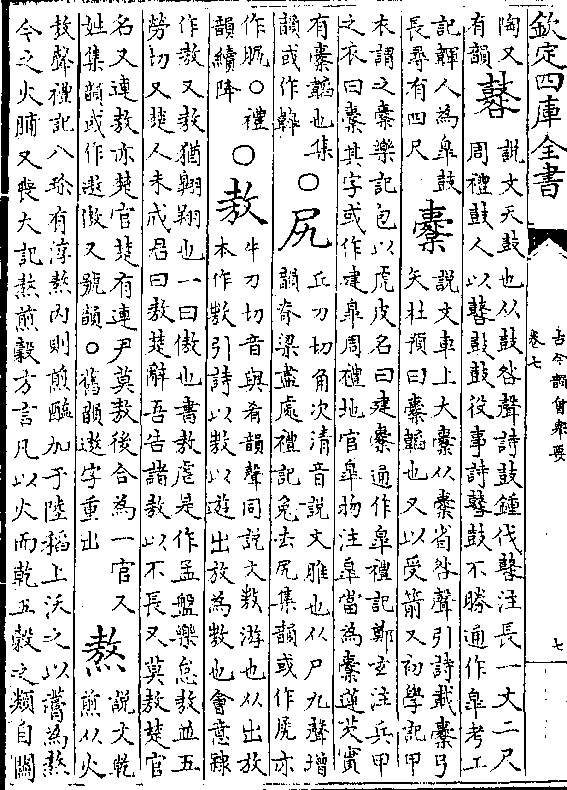 欽定四庫全書
古今韻會舉要
卷七
七
陶又
有韻
鼛
說文天鼓也从鼓咎聲詩鼓鍾伐鼛注長一丈二尺
周禮鼓人以鼛鼓鼓役事詩鼛鼓不勝通作臯考工
記韗人為臯鼓
長尋有四尺
櫜
說文車上大橐从橐省咎聲引詩載櫜弓
矢杜預曰櫜韜也又以受箭又初學記甲
衣謂之櫜樂記包以虎皮名曰建櫜通作臯禮記鄭玄注兵甲
之衣曰櫜其字或作建臯周禮地官臯物注臯當為櫜蓮芡實
有櫜韜也集
韻或作韟
○尻
丘刀切角次清音說文脽也从尸九聲增
韻脊梁盡處禮記兔去尻集韻或作亦
作○禮
韻續降
○敖
牛刀切音與肴韻聲同說文敖游也从出放
本作敖引詩以敖以遊出放為敖也會意隸
作敖又敖猶翱翔也一曰傲也書敖虐是作孟盤樂怠敖並五
勞切又楚人未成君曰敖楚辭吾告諸敖以不長又莫敖楚官
名又連敖亦楚官楚有連尹莫敖後合為一官又
姓集韻或作遨傲又號韻○舊韻遨字重出
熬
說文乾
煎从火
敖聲禮記八珍有淳熬內則煎醢加于陸稻上沃之以膏為熬
今之火脯又喪大記熬煎穀方言凡以火而乾五穀之類自關